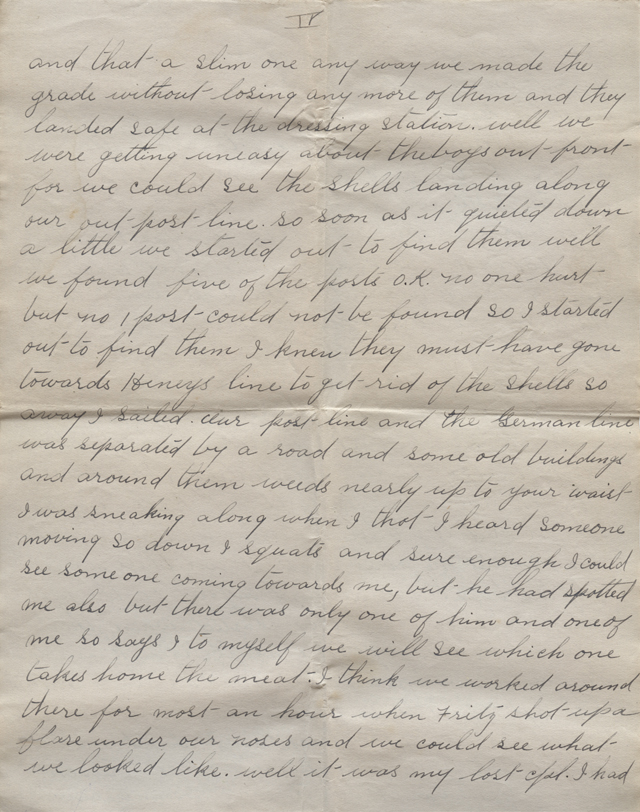 IV
and that a slim one any way we made the
grade without losing any more of them and they
landed safe at the dressing station. well we
were getting uneasy about the boys out front
for we could see the shells landing along
our out-post line. so soon as it quieted down
a little we started out to find them well
we found five of the posts O.K. no one hurt
but no 1 post could not be found so I started
out to find them I knew they must have gone
towards Heneys line to get rid of the shells so
away I sailed. Our post line and the German line
was separated by a road and some old buildings
and around them weeds nearly up to your waist
I was sneaking along when I thot I heard someone
moving so down I squats and sure enough I could
see some one coming towards me, but he had spotted
me also but there was only one of him and one of
me so says I to myself we will see which one
takes home the meat. I think we worked around
there for most an hour when Fritz shot up a
flare under our noses and we could see what
we looked like. well it was my lost cpl. I had